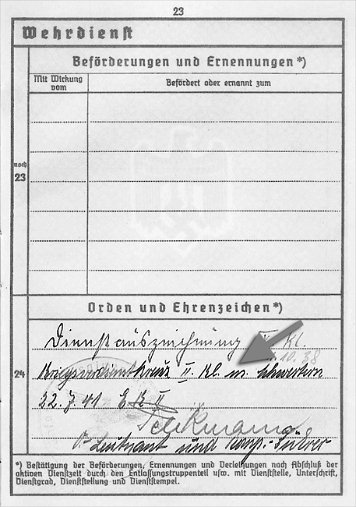 23
Wehrdienst
Beförderungen und Ernennungen*)
Mit Wirkung vom
Befördert oder ernannt zum
noch
23
Orden und Ehrenzeichen*)
Dienstauszeichnung Kl.
10.38
24
Kriegsverdienstkreuz II. Kl. m. Schwertern
22.7.41
Leutnant und Komp.-Führer
*) Bestätigung der Beförderungen, Ernennungen und Verleihungen nach Abschluß der
aktiven Dienstzeit durch den Entlassungstruppenteil usw. mit Dienststelle, Unterschrift,
Dienstgrad, Dienststellung und Dienststempel.